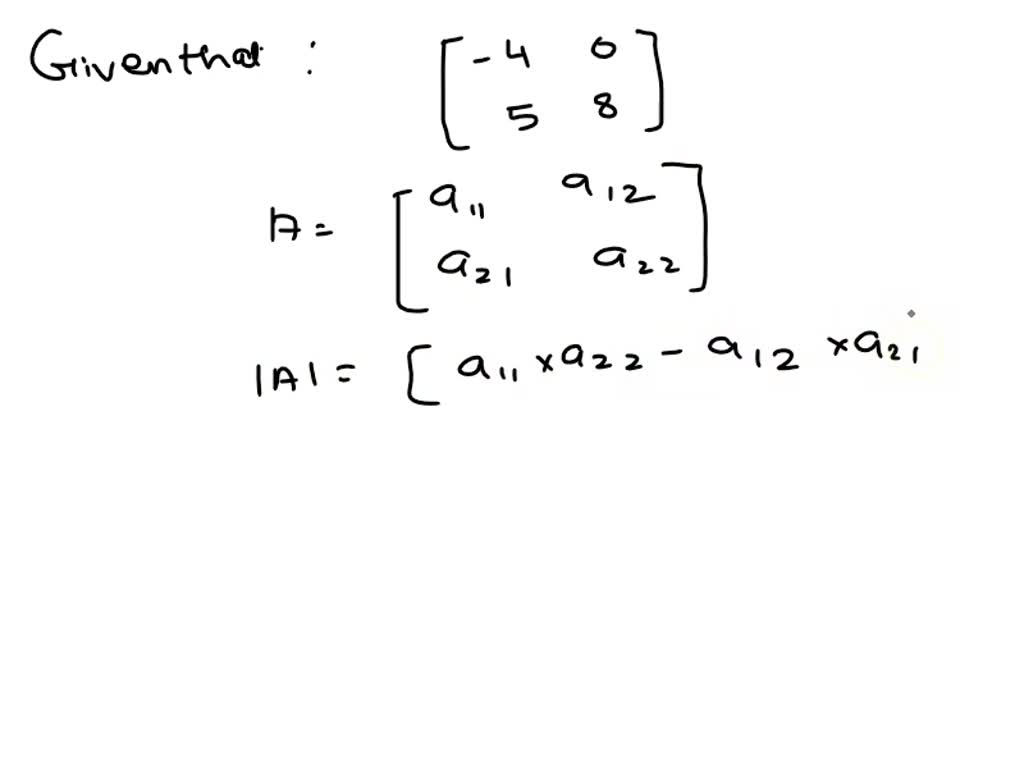 Given that : [ -4 0
5 8 ]
A = [ a11 a12
a21 a22 ]
|A| = [ a11 × a22 - a12 × a21